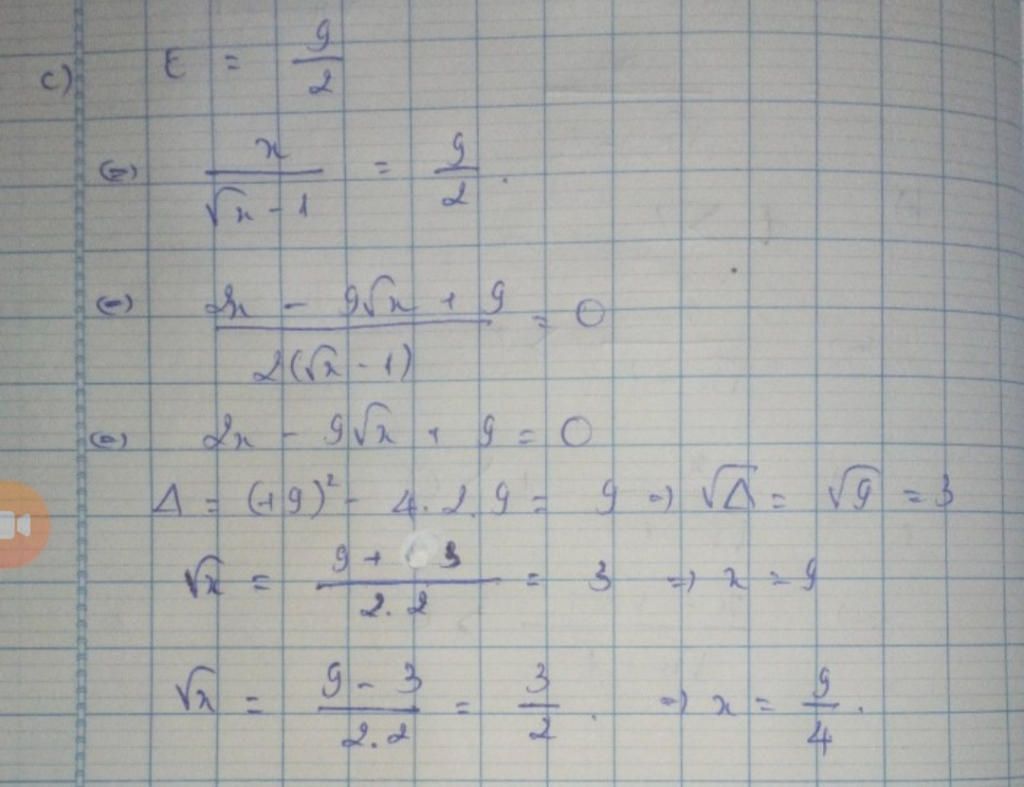 c) E = 9/2
(=) x/(√x - 1) = 9/2.
(=) (2x - 9√x + 9)/(2(√x - 1)) = 0
(=) 2x - 9√x + 9 = 0
Δ = (-9)² - 4.2.9 = 9 => √Δ = √9 = 3
√x = (9 + 3)/(2.2) = 3 => x = 9
√x = (9 - 3)/(2.2) = 3/2. => x = 9/4.